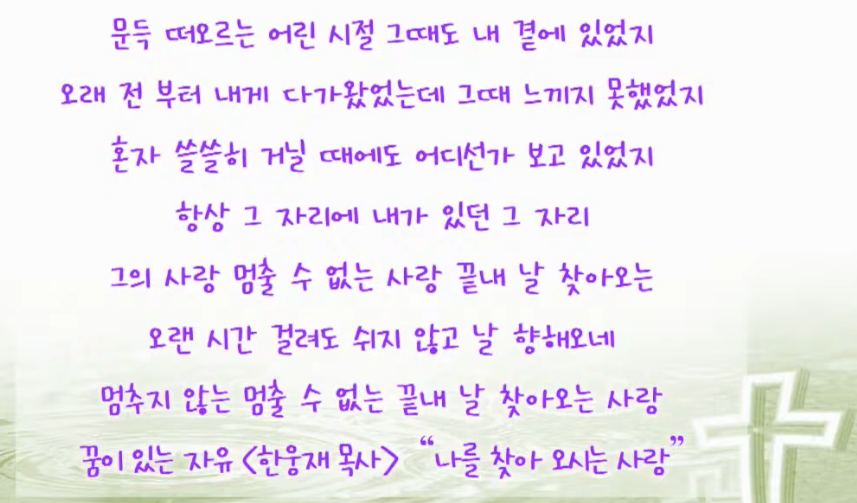 문득 떠오르는 어린 시절 그때도 내 곁에 있었지
오래 전 부터 내게 다가왔었는데 그때 느끼지 못했었지
혼자 쓸쓸히 거닐 때에도 어디선가 보고 있었지
항상 그 자리에 내가 있던 그 자리
그의 사랑 멈출 수 없는 사랑 끝내 날 찾아오는
오랜 시간 걸려도 쉬지 않고 날 향해오네
멈추지 않는 멈출 수 없는 끝내 날 찾아오는 사랑
꿈이 있는 자유 <한웅재 목사> “나를 찾아 오시는 사랑”